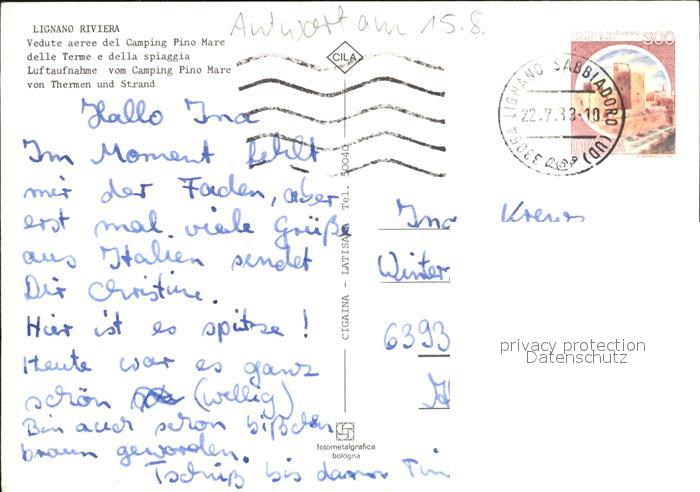 Antwort am 15.8.
LIGNANO RIVIERA
Vedute aeree del Camping Pino Mare
delle Terme e della spiaggia
Luftaufnahme vom Camping Pino Mare
von Thermen und Strand
CILA
300
33054 LIGNANO SABBIADORO (UD)
22.7.83-10
Hallo Ina
Im Moment fehlt
mir der Faden, aber
erst mal viele Grüße
aus Italien sendet
Dir Christine.
Hier ist es spitze!
Heute war es ganz
schön (wellig)
Bin auch schon bißchen
braun geworden.
Tschüß bis dann Tin
CIGAINA - LATISANA Tel. 50040
fotometalgrafica
bologna
Ina
Winter
6393
privacy protection
Datenschutz